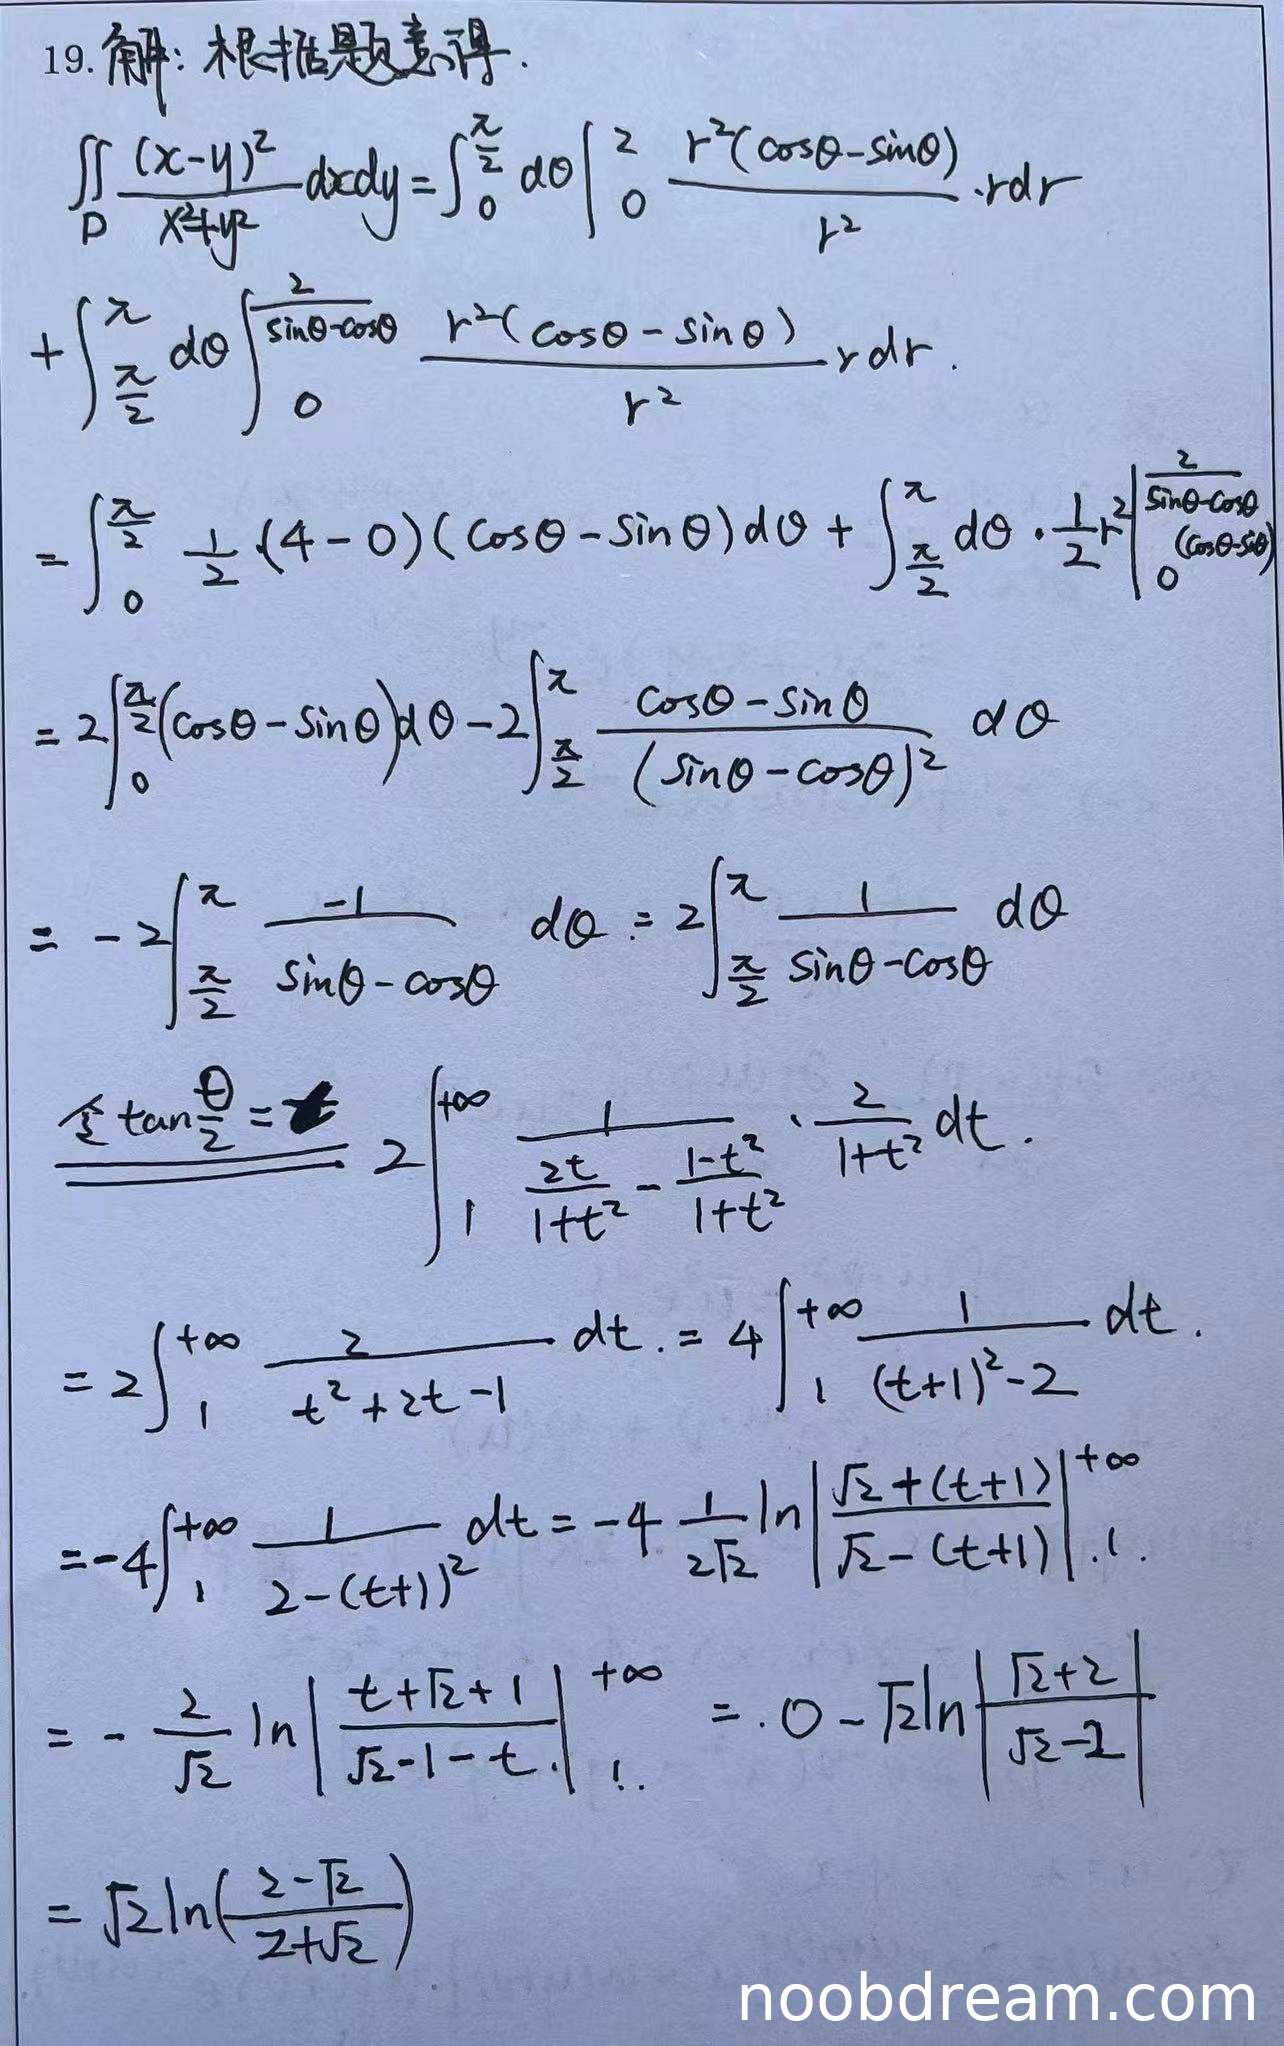 19. 解: 根据题意得.
∬_D (x-y)²/(x²+y²) dxdy = ∫_0^{π/2} dθ |_0^2 r²(cosθ-sinθ)/r² · rdr
+ ∫_{π/2}^{π} dθ ∫_0^{2/(sinθ-cosθ)} r²(cosθ-sinθ)/r² rdr.
= ∫_0^{π/2} 1/2·(4-0)(cosθ-sinθ)dθ + ∫_{π/2}^{π} dθ · 1/2 r² |_0^{2/(sinθ-cosθ)} (cosθ-sinθ)
= 2∫_0^{π/2} (cosθ-sinθ)dθ - 2∫_{π/2}^{π} (cosθ-sinθ)/(sinθ-cosθ)² dθ
= -2∫_{π/2}^{π} -1/(sinθ-cosθ) dθ = 2∫_{π/2}^{π} 1/(sinθ-cosθ) dθ
令tan θ/2 = t 2∫_1^{+∞} 1/(2t/(1+t²) - (1-t²)/(1+t²)) · 2/(1+t²) dt.
= 2∫_1^{+∞} 2/(t²+2t-1) dt. = 4∫_1^{+∞} 1/((t+1)²-2) dt.
= -4∫_1^{+∞} 1/(2-(t+1)²) dt = -4 1/(2√2) ln|(√2+(t+1))/(√2-(t+1))| _1^{+∞}
= - 2/√2 ln|(t+√2+1)/(√2-1-t)| _1^{+∞} = 0 - √2 ln|(√2+2)/(√2-2)|
= √2 ln((2-√2)/(2+√2))
noobdream.com